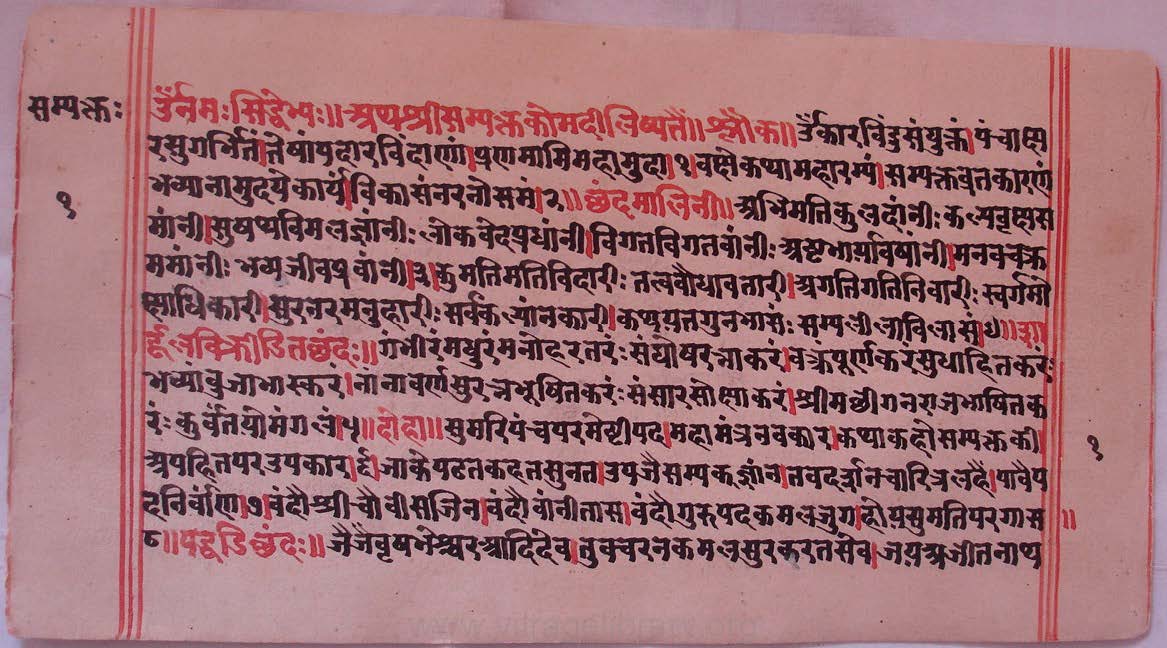 सम्यक्तः
१
उँर्नमःसिद्वेभ्यः॥अथश्रीसम्यक्तकौमदीलिष्यतैं॥श्लौक॥उँर्कारविंदुसंयुक्तं।पंचाक्ष
रसुगर्भितं।तेषांपदारविंदाणां।प्रणमामिमहामुदा।१।वक्षेकथामहारम्यं।सम्यक्तव्रतकारणं
भव्यानामुदयेकार्यं।विकासंनरनौसमं।२॥छंदमालिनी॥अभिमतिकुलदांनीःकल्पवृक्षास
मांनी।सुषथ्यविमलज्ञांनीःलोकवेदप्रधांनी।विगतविगतवांनीःअष्टभार्याविषांनी।मनवक्चक्र
ममांनीःभव्यजीवप्रवांनी।३।कुमतिमतिविदारीःतत्ववौधावतारी।अगतिगतिनिवारीःस्वर्गमौ
क्षाधिकारी।सुरनरमनुहारीःसर्वकल्यांनकारी।कथयतगुनभासंःसम्यलीलाविलासं।४॥शा
र्द्दूलविक्रीडितछंदः॥गंभीरंमधुरंमनोहरतरंःसंघौषरत्नाकरं।वक्रंपूर्णकरंसुधाहितकरंः
भव्यांवुजाभास्करं।नांनावर्णसुरत्नभूषितकरंःसंसारसौक्षाकरं।श्रीमछीगनराजभाषितक
रंःकुर्वंतयोमंगलं।५॥दोहा॥सुमरिपंचपरमेष्टीपद।महामंत्रनवकार।कथाकहौसम्यक्तकी।
अपहितपरउपकार।६।जाकेपढतकहतसुनत।उपजैसम्यकज्ञांन।तवदर्शनचारित्रलहै।पावैप
दनिर्वांण।७।वंदौश्रीचौवीसजिन।वंदौवांनीतास।वंदौगुरुपदकमलजुग।होयसुमतिपरगास॥
८॥पद्धडिछंदः॥जैजैवृषभेश्वरआदिदेव।तुवचरनकमलसुरकरतसेव।जयअजीतनाथ
१
www.vitragelibrary.org